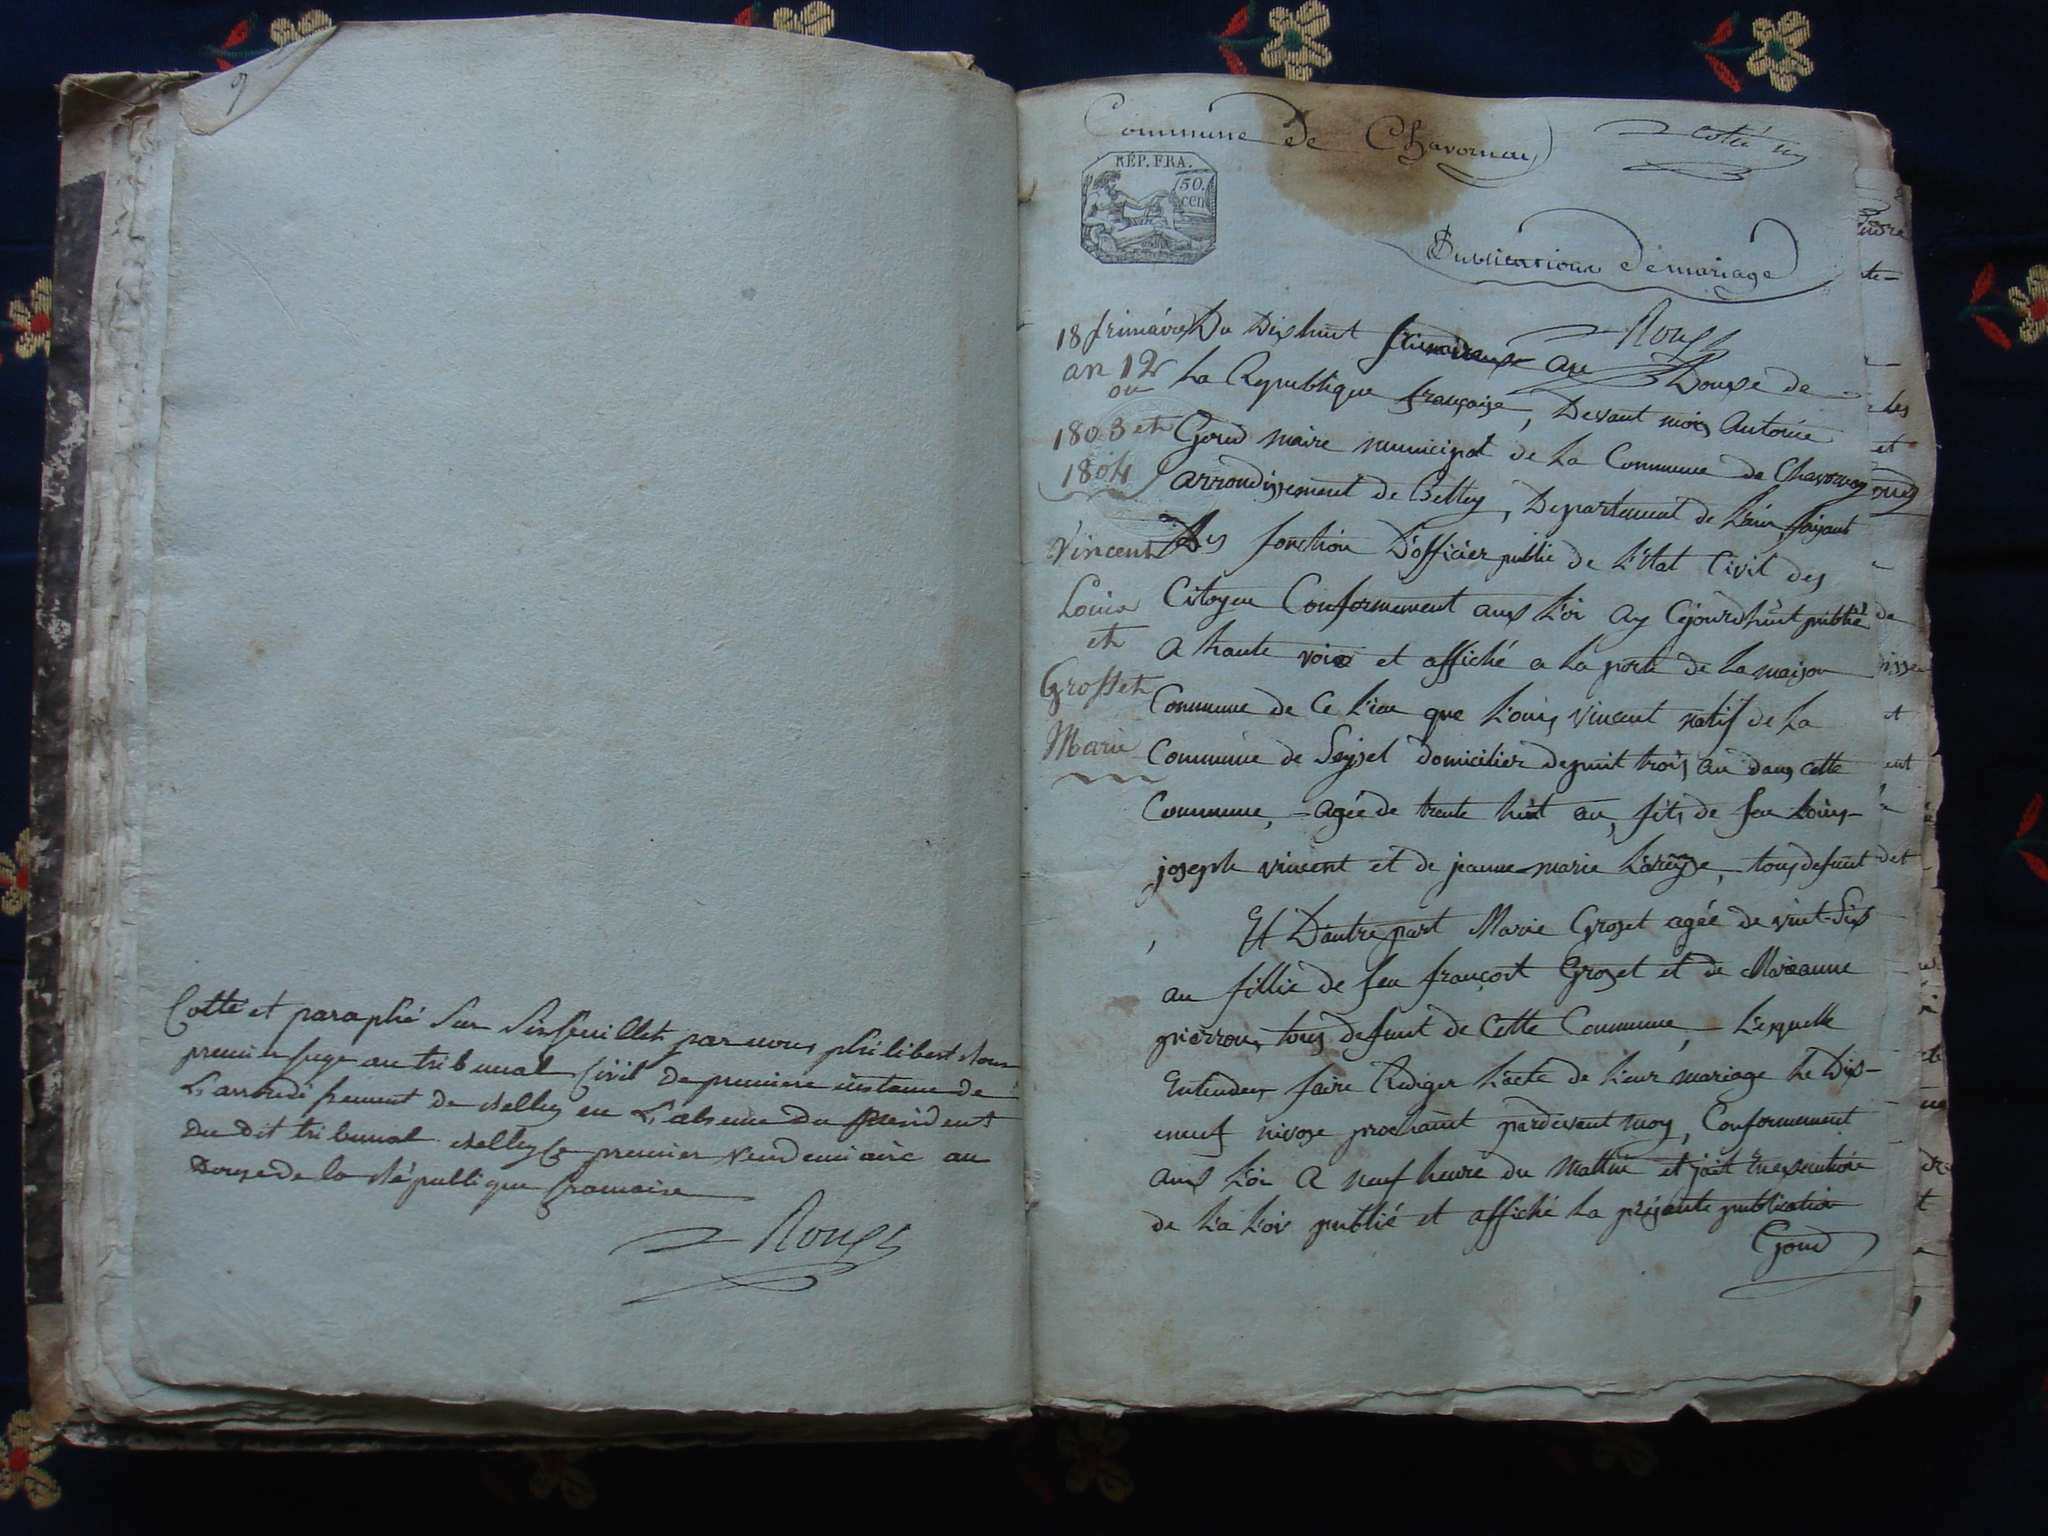 9
Cotté et paraphé sur six feuillets par nous philibert Roux
premier juge au tribunal Civil de premiere instance de
L'arrondissement de Belley en L'absence du president
du dit tribunal Belley ce premier vendemiaire an
douze de la République francaise
Roux
Commune de Chavornay
cotté
RÉP. FRA.
50.
cen
Publications de mariage
Roux
18 frimaire
an 12
ou
1803 et
1804
Vincent
Louis
et
Grosset
Marie
Du Dix huit frimaire an Douze de
La Republique française, Devant moi Antoine
Goud maire municipal de La Commune de Chavornay
arrondissement de Belley, Departement de L'ain, faisant
Les fonction D'officier public de L'état Civil des
Citoyen Conformement aux Loi ay Cejourdhuit publié
a haute voix et affiché a La porte de La maison
Commune de Ce Lieu que Louis Vincent natif de La
Commune de Seyssel domicilier depuit trois an dans cette
Commune, agée de trente huit an, fils de feu Louis
joseph vincent et de jeanne marie tous defunt
Et D'autre part Marie Groset agée de vint-Six
an fillie de feu françois Groset et de Marianne
pierron, tous defunt de Cette Commune, Lesquelle
Entender faire Rediger L'acte de Leur mariage Le Dix-
neuf nivose prochaint pardevant moy, Conformement
aux Loi a neuf heure du mattin et jait En execution
de La Loi publié et affiché La présante publication
Goud